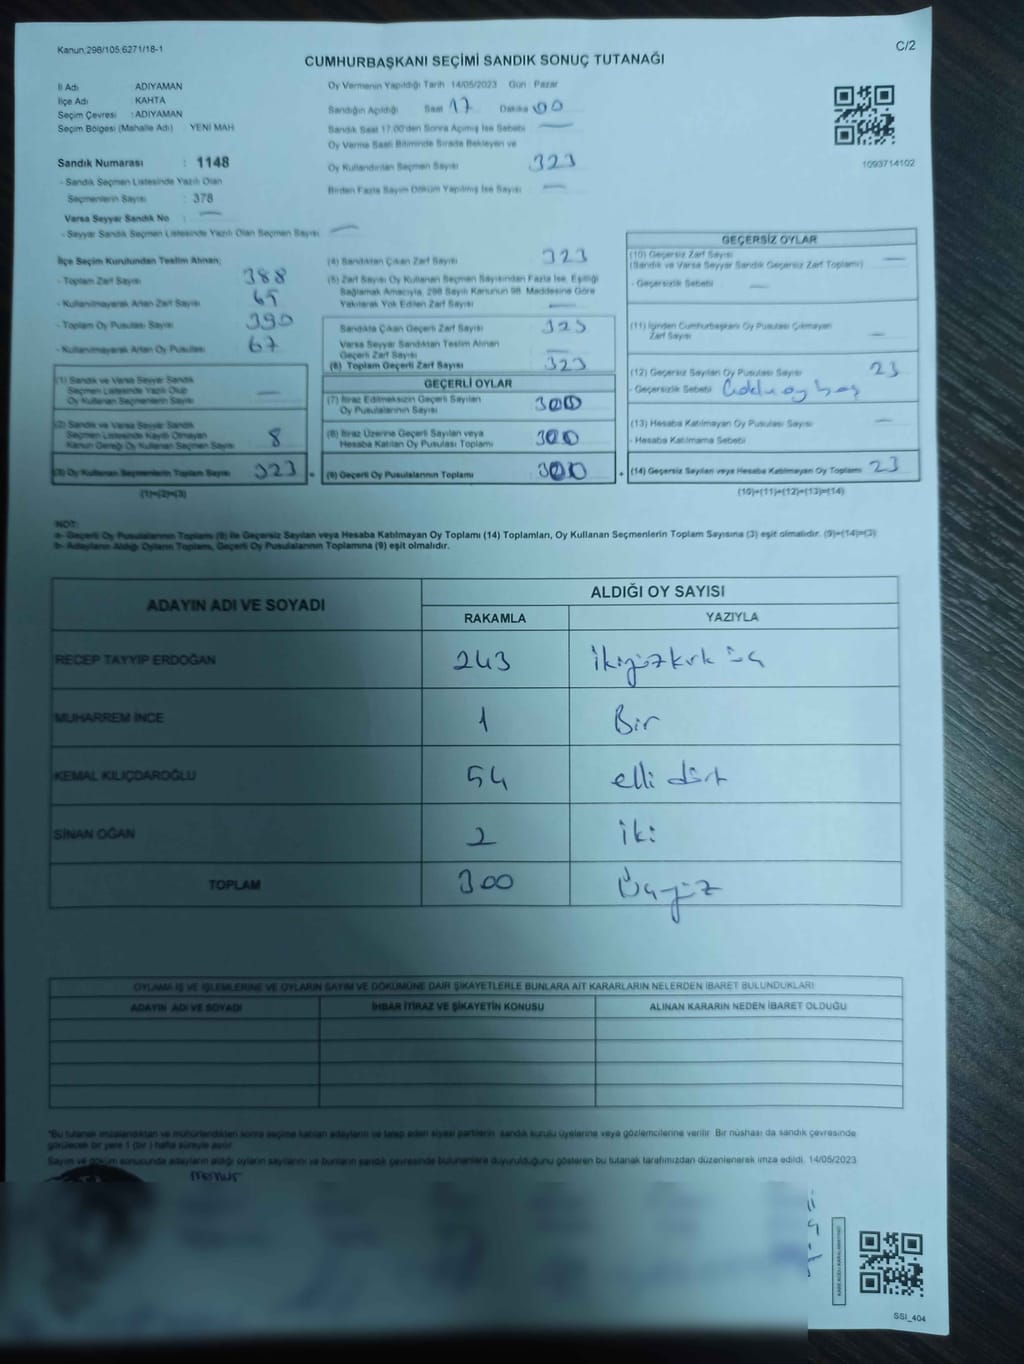 Kanun;298/105;6271/18-1
C/2
CUMHURBAŞKANI SEÇİMİ SANDIK SONUÇ TUTANAĞI
İl Adı : ADIYAMAN
İlçe Adı : KAHTA
Seçim Çevresi : ADIYAMAN
Seçim Bölgesi (Mahalle Adı) YENİ MAH
Sandık Numarası : 1148
- Sandık Seçmen Listesinde Yazılı Olan
Seçmenlerin Sayısı : 378
Varsa Seyyar Sandık No : —
- Seyyar Sandık Seçmen Listesinde Yazılı Olan Seçmen Sayısı —
Oy Vermenin Yapıldığı Tarih 14/05/2023 Gün : Pazar
Sandığın Açıldığı Saat 17 Dakika 00
Sandık Saat 17:00'den Sonra Açılmış İse Sebebi —
Oy Verme Saati Bitiminde Sırada Bekleyen ve
Oy Kullandırılan Seçmen Sayısı 323
Birden Fazla Sayım Döküm Yapılmış İse Sayısı —
1093714102
İlçe Seçim Kurulundan Teslim Alınan;
- Toplam Zarf Sayısı 388
- Kullanılmayarak Artan Zarf Sayısı 65
- Toplam Oy Pusulası Sayısı 390
- Kullanılmayarak Artan Oy Pusulası 67
(1) Sandık ve Varsa Seyyar Sandık
Seçmen Listesinde Yazılı Olup
Oy Kullanan Seçmenlerin Sayısı —
(2) Sandık ve Varsa Seyyar Sandık
Seçmen Listesinde Kayıtlı Olmayan
Kanun Gereği Oy Kullanan Seçmen Sayısı 8
(3) Oy Kullanan Seçmenlerin Toplam Sayısı 323
(1)+(2)=(3)
(4) Sandıktan Çıkan Zarf Sayısı 323
(5) Zarf Sayısı Oy Kullanan Seçmen Sayısından Fazla İse, Eşitliği
Sağlamak Amacıyla, 298 Sayılı Kanunun 98. Maddesine Göre
Yakılarak Yok Edilen Zarf Sayısı —
Sandıkta Çıkan Geçerli Zarf Sayısı 323
Varsa Seyyar Sandıktan Teslim Alınan
Geçerli Zarf Sayısı —
(6) Toplam Geçerli Zarf Sayısı 323
GEÇERLİ OYLAR
(7) İtiraz Edilmeksizin Geçerli Sayılan
Oy Pusulalarının Sayısı 300
(8) İtiraz Üzerine Geçerli Sayılan veya
Hesaba Katılan Oy Pusulası Toplamı 300
(9) Geçerli Oy Pusulalarının Toplamı 300
GEÇERSİZ OYLAR
(10) Geçersiz Zarf Sayısı —
(Sandık ve Varsa Seyyar Sandık Geçersiz Zarf Toplamı)
- Geçersizlik Sebebi —
(11) İçinden Cumhurbaşkanı Oy Pusulası Çıkmayan
Zarf Sayısı —
(12) Geçersiz Sayılan Oy Pusulası Sayısı 23
- Geçersizlik Sebebi
(13) Hesaba Katılmayan Oy Pusulası Sayısı —
- Hesaba Katılmama Sebebi
(14) Geçersiz Sayılan veya Hesaba Katılmayan Oy Toplamı 23
(10)+(11)+(12)+(13)=(14)
NOT:
a- Geçerli Oy Pusulalarının Toplamı (9) ile Geçersiz Sayılan veya Hesaba Katılmayan Oy Toplamı (14) Toplamları, Oy Kullanan Seçmenlerin Toplam Sayısına (3) eşit olmalıdır. (9)+(14)=(3)
b- Adayların Aldığı Oyların Toplamı, Geçerli Oy Pusulalarının Toplamına (9) eşit olmalıdır.
ADAYIN ADI VE SOYADI ALDIĞI OY SAYISI
RAKAMLA YAZIYLA
RECEP TAYYİP ERDOĞAN 243 ikiyüzkırk üç
MUHARREM İNCE 1 Bir
KEMAL KILIÇDAROĞLU 54 elli dört
SİNAN OĞAN 2 iki
TOPLAM 300 Üçyüz
OYLAMA İŞ VE İŞLEMLERİNE VE OYLARIN SAYIM VE DÖKÜMÜNE DAİR ŞİKAYETLERLE BUNLARA AİT KARARLARIN NELERDEN İBARET BULUNDUKLARI
ADAYIN ADI VE SOYADI İHBAR İTİRAZ VE ŞİKAYETİN KONUSU ALINAN KARARIN NEDEN İBARET OLDUĞU
*Bu tutanak imzalandıktan ve mühürlendikten sonra seçime katılan adayların ve talep eden siyasi partilerin sandık kurulu üyelerine veya gözlemcilerine verilir. Bir nüshası da sandık çevresinde
görülecek bir yere 1 (bir) hafta süreyle asılır.
Sayım ve döküm sonucunda adayların aldığı oyların sayılarını ve bunların sandık çevresinde bulunanlara duyurulduğunu gösteren bu tutanak tarafımızdan düzenlenerek imza edildi. 14/05/2023
memur
SSI_404